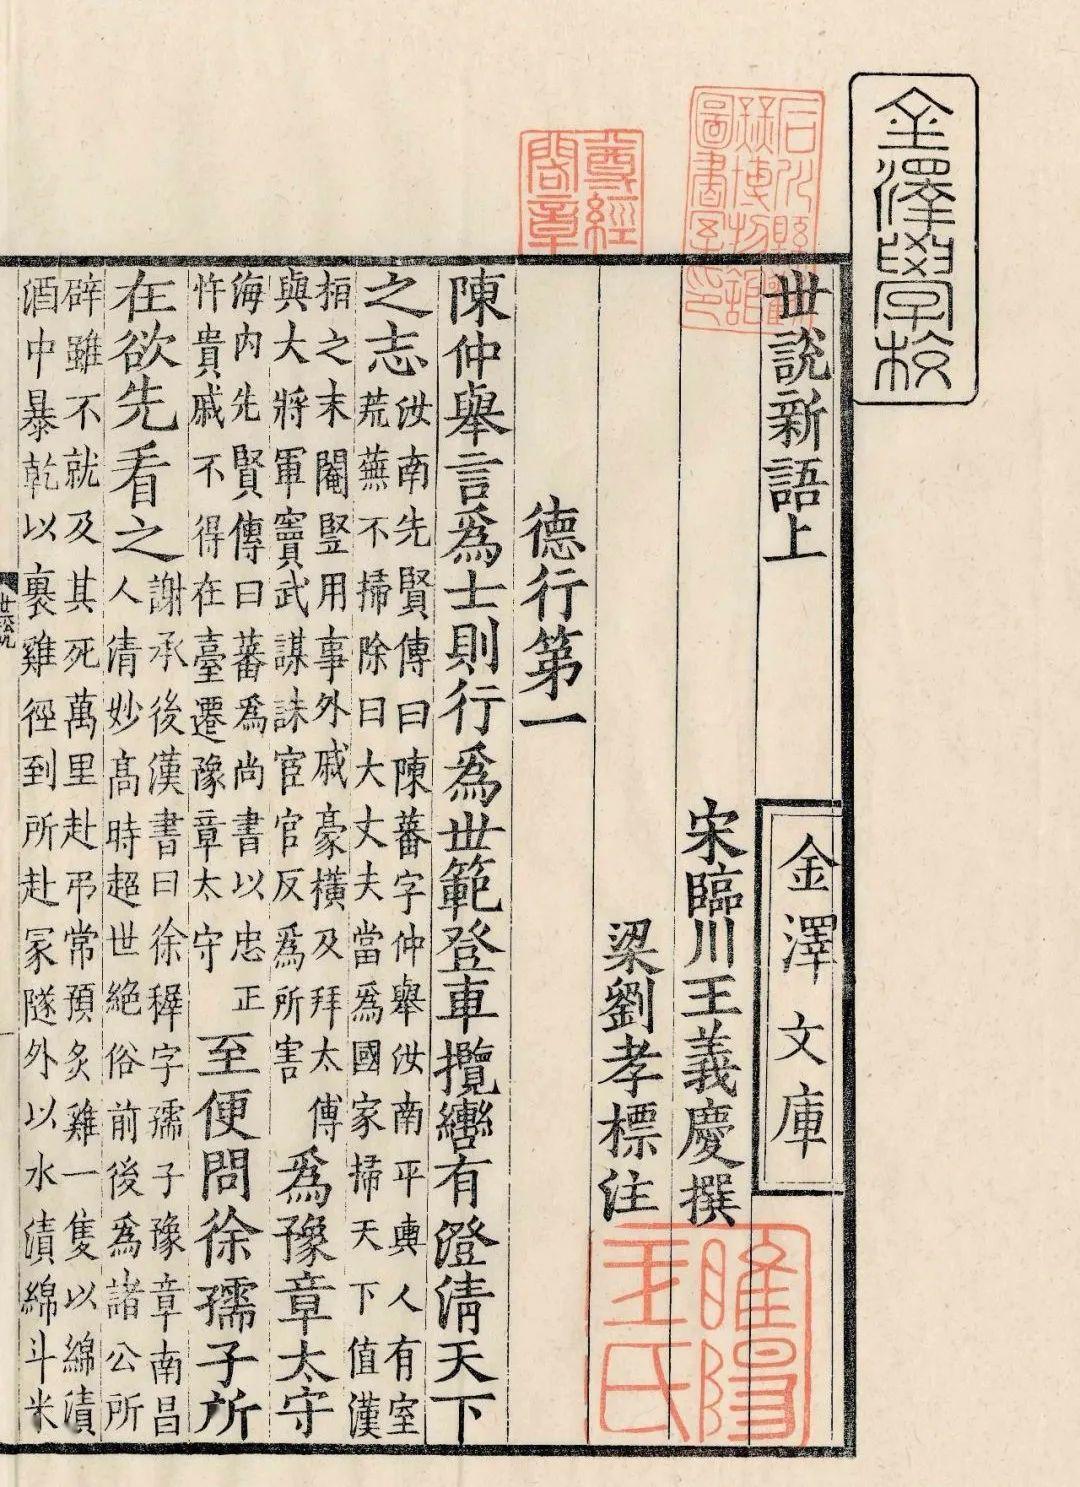 金澤學校
石川縣勸業博物館圖書室印
尊經閣章
世說新語上
金澤文庫
宋臨川王義慶撰
梁劉孝標注
睢陽王氏
德行第一
陳仲舉言爲士則行爲世範登車攬轡有澄清天下
之志
汝南先賢傳曰陳蕃字仲舉汝南平輿人有室
荒蕪不掃除曰大丈夫當爲國家掃天下值漢
桓之末閹竪用事外戚豪橫及拜太傅
與大將軍竇武謀誅宦官反爲所害
爲豫章太守
海内先賢傳曰蕃爲尚書以忠正
忤貴戚不得在臺遷豫章太守
至便問徐孺子所
在欲先看之
謝承後漢書曰徐穉字孺子豫章南昌
人清妙髙時超世絶俗前後爲諸公所
辟雖不就及其死萬里赴弔常預炙雞一隻以綿漬
酒中暴乾以裹雞徑到所赴冢隧外以水漬綿斗米
世說